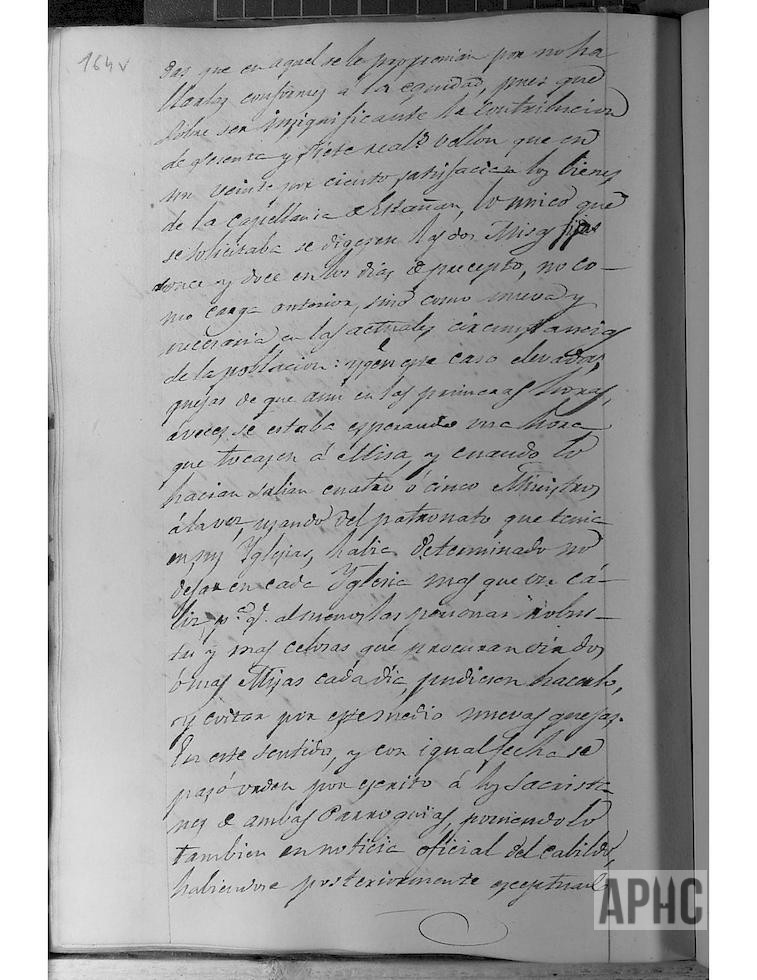 164v
das que en aquel se le proponian por no ha
llarlas conformes a la equidad, pues que
sobre ser insignificante la contribucion
de sesenta y siete real.s vellon que en
un veinte por ciento satisfacian los bienes
de la capellania de Estañan, lo unico que
se solicitaba se digesen las dos Misas fijas
once y doce en los dias de precepto, no co-
mo carga anterior, sino como nueva y
necesaria en las actuales circunstancias
de la poblacion: y q.e en este caso elevadas
quejas de que aun en las primeras horas,
aveces se estaba esperando una hora
que tocasen á Misa, y cuando lo
hacian salian cuatro o cinco Ministros
álavez, usando del patronato que tenia
en sus Yglesias, habia determinado no
dejar en cada Yglesia mas que un cá-
liz, p.a q.e al menos las personas robus-
tas y mas celosas que procuran oir dos
ó mas Misas cada dia, pudiesen hacerlo,
y evitar por este medio nuevas quejas.
En este sentido, y con igual fecha se
pasó orden por escrito á los Sacrista
nes de ambas Parroquias, poniendolo
tambien en noticia oficial del cabildo,
habiendose posteriormente exceptuado
APHC